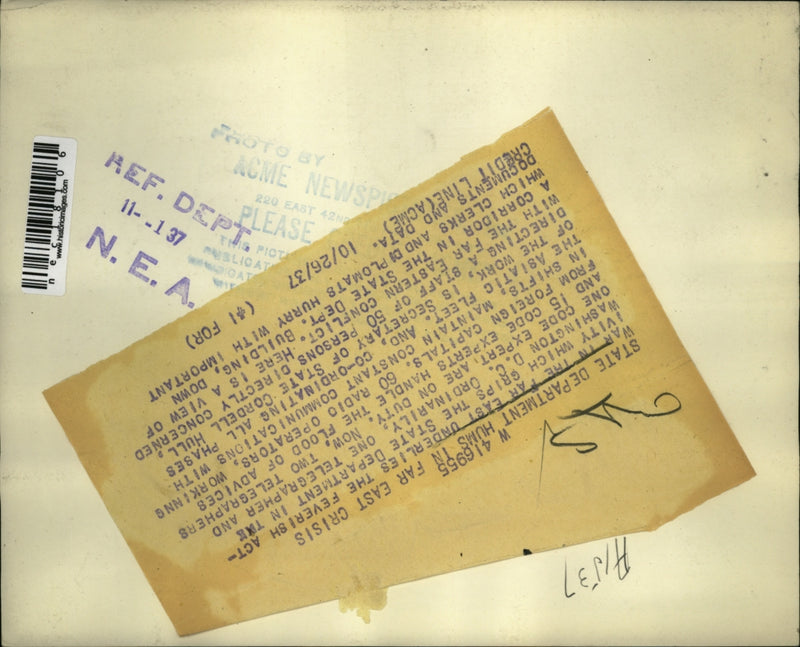 PHOTO BY
ACME NEWSPIC
220 EAST 42ND
PLEASE
THIS PICT
PUBLICAT
REF. DEPT.
11--1 37
N. E. A.
nec18106
www.historicimages.com
W 416955
STATE DEPARTMENT HUMS IN FAR EAST CRISIS
WASHINGTON, D.C. THE FEVERISH ACT-
IVITY WHICH GRIPS THE STATE DEPARTMENT IN
THE FAR EAST ORDINARILY ONE TELEGRAPHER AND
ONE CODE EXPERT ARE ON DUTY. NOW, TWO TELEGRAPHERS
AND 15 CODE EXPERTS HANDLE THE FLOOD OF ADVICES
FROM FOREIGN CAPITALS. RADIO OPERATORS, WORKINNG
IN SHIFTS, MAINTAIN CONSTANT COMMUNICATIONS WITH
THE ASIATIC FLEET.
DIRECTING THE WORK, AND CO-ORDINATING ALL PHASES
OF IT IS SECRETARY OF STATE CORDELL HULL,
WITH A STAFF OF 50 PERSONS DIRECTLY CONCERNED
WITH THE FAR EASTERN CONFLICT. HERE IS A VIEW OF
A CORRIDOR IN THE STATE DEPT. BUILDING, DOWN
WHICH CLERKS AND DIPLOMATS HURRY WITH IMPORTANT
DOCUMENTS AND DATA.
CREDIT LINE(ACME) 10/26/37 (#1 FOR)